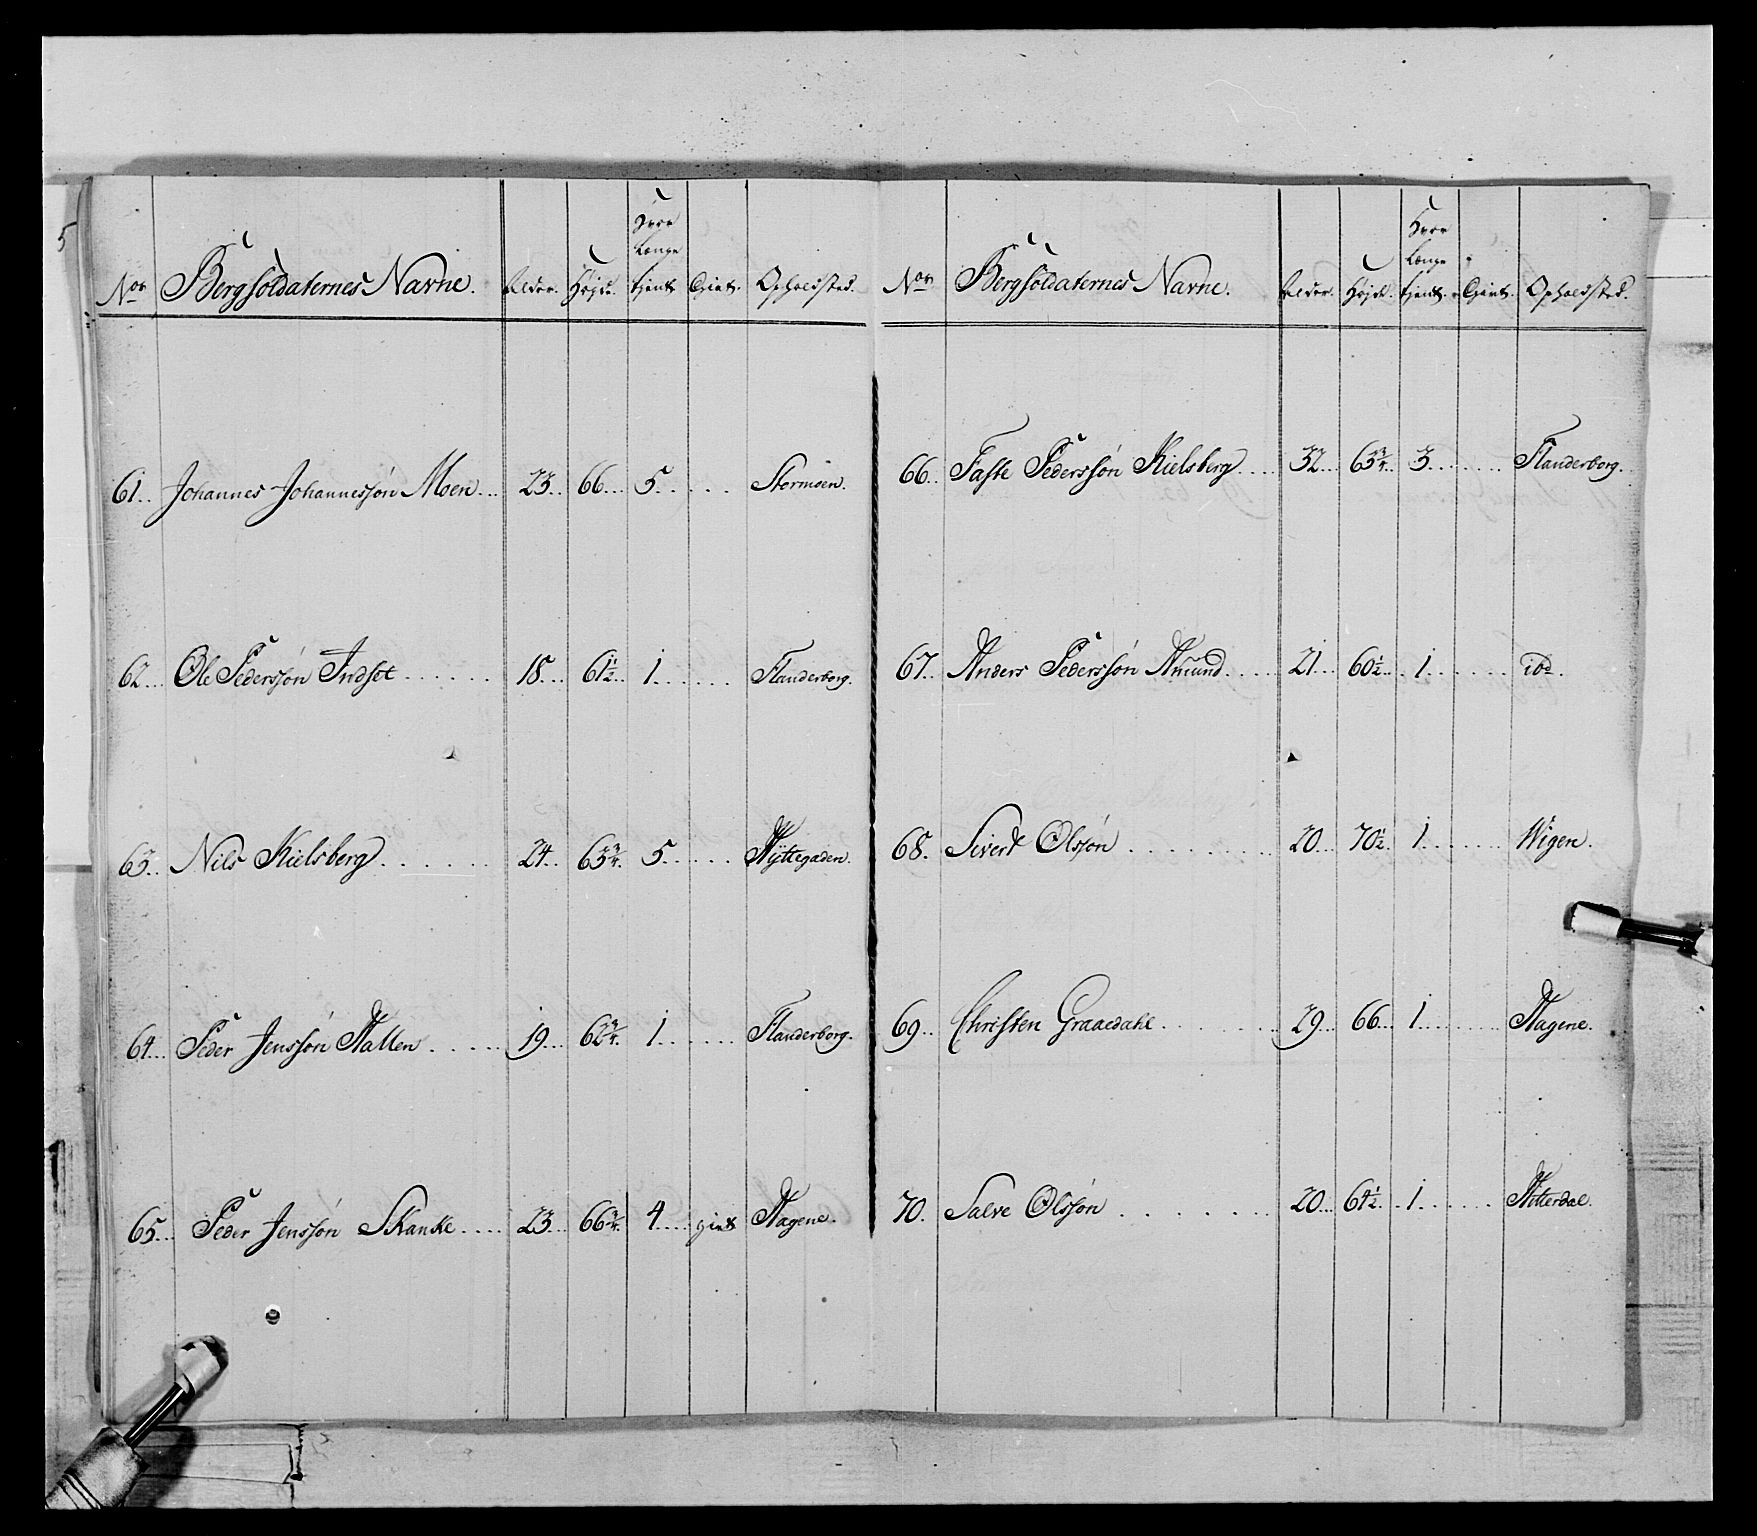 Nor Bergsoldaternes Navne. Alder. Højde. Hvor Længe tjent. Givt. Opholdsted.
61. Johannes Johannessøn Moen... 23.. 66... 5..... Stormoen.
62... Ole Pederssøn Indset ...... 18... 61½... 1...... Flanderborg.
63.. Nils Kielsberg ...... 24.. 63¾. 5..... Hyttegaden.
64... Peder Jenssøn Hallen ..... 19... 62¾. 1...... Flanderborg.
65... Peder Jenssøn Skanke .... 23... 66¾. 4.... givt Hagene.
Nor Bergsoldaternes Navne. Alder. Højde. Hvor Længe tjent. Givt. Opholdsted.
66.. Faste Pederssøn Kielsberg.... 32... 63¾. 3....... Flanderborg.
67.. Anders Pederssøn Amund.... 21... 60½... 1....... ibd.
68. Sivert Olssøn ......... 20... 70½. 1....... Wigen.
69.. Christen Graaedahl ....... 29... 66... 1....... Hagene.
70. Salve Olssøn ........ 20... 64½. 1...... Hitterdal.